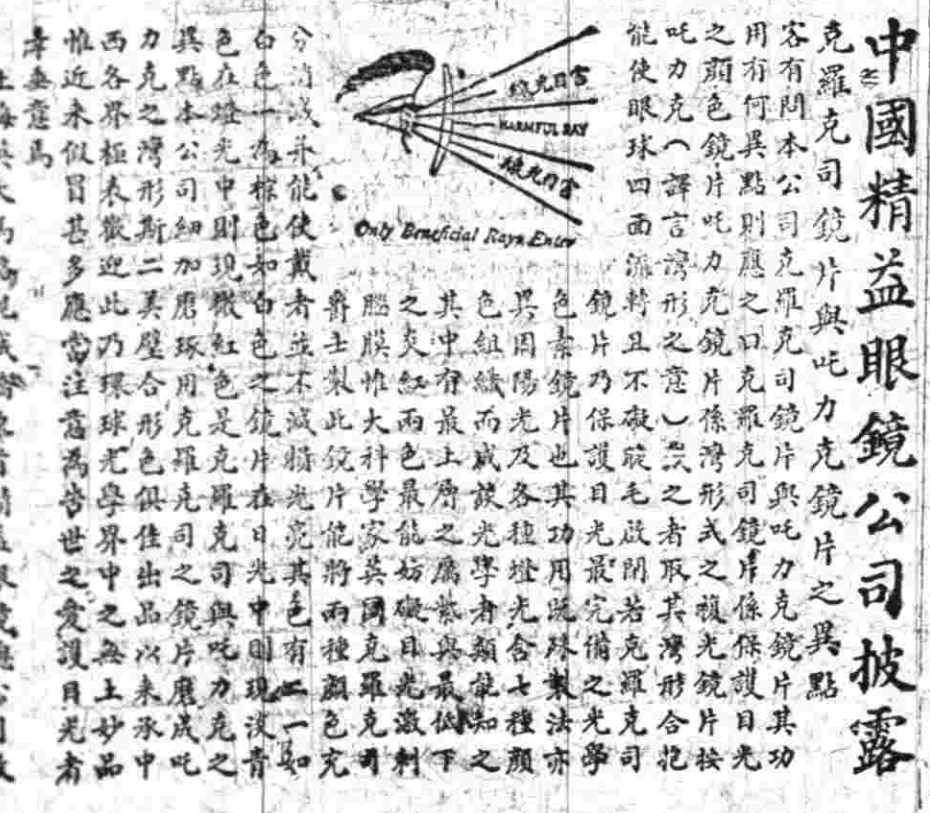 中國精益眼鏡公司披露
克羅克司鏡片與吒力克鏡片之異點
客有問本公司克羅克司鏡片與吒力克鏡片其功
用有何異點則應之曰克羅克司鏡片係保護目光
之顏色鏡片吒力克鏡片係灣形式之複光鏡片按
吒力克（譯言灣形之意）次之者取其灣形合抱
能使眼球四面流轉且不礙睫毛啟閉若克羅克司
鏡片乃保護目光最完備之光學
色素鏡片也其功用既殊製法亦
異因陽光及各種燈光含七種顏
色組織而成談光學者類能知之
其中有最上層之屬紫與最低下
之炎紅兩色最能妨礙目光激刺
腦膜惟大科學家英國克羅克司
爵士製此鏡片能將兩種顏色充
HARMFUL RAY
Only Beneficial Rays Enter
分消滅并能使戴者並不減損光亮其色有二一如
白色一為棕色如白色之鏡片在日光中則現淡青
色在燈光中則現微紅色是克羅克司與吒力克之
異點本公司細加磨琢用克羅克司之鏡片磨成吒
力克之灣形斯二美璧合形色俱佳出品以來承中
西各界極表歡迎此乃環球光學界中之無上妙品
惟近來似冒甚多應當注意為告世之愛護目光者
幸垂意焉